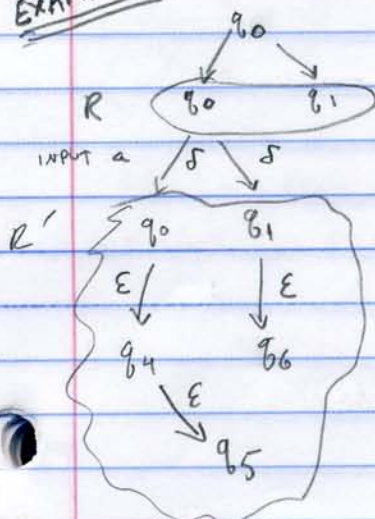 EXAM
q0
R q0 q1
INPUT a δ δ
R′ q0 q1
ε ε
q4 q6
ε
q5